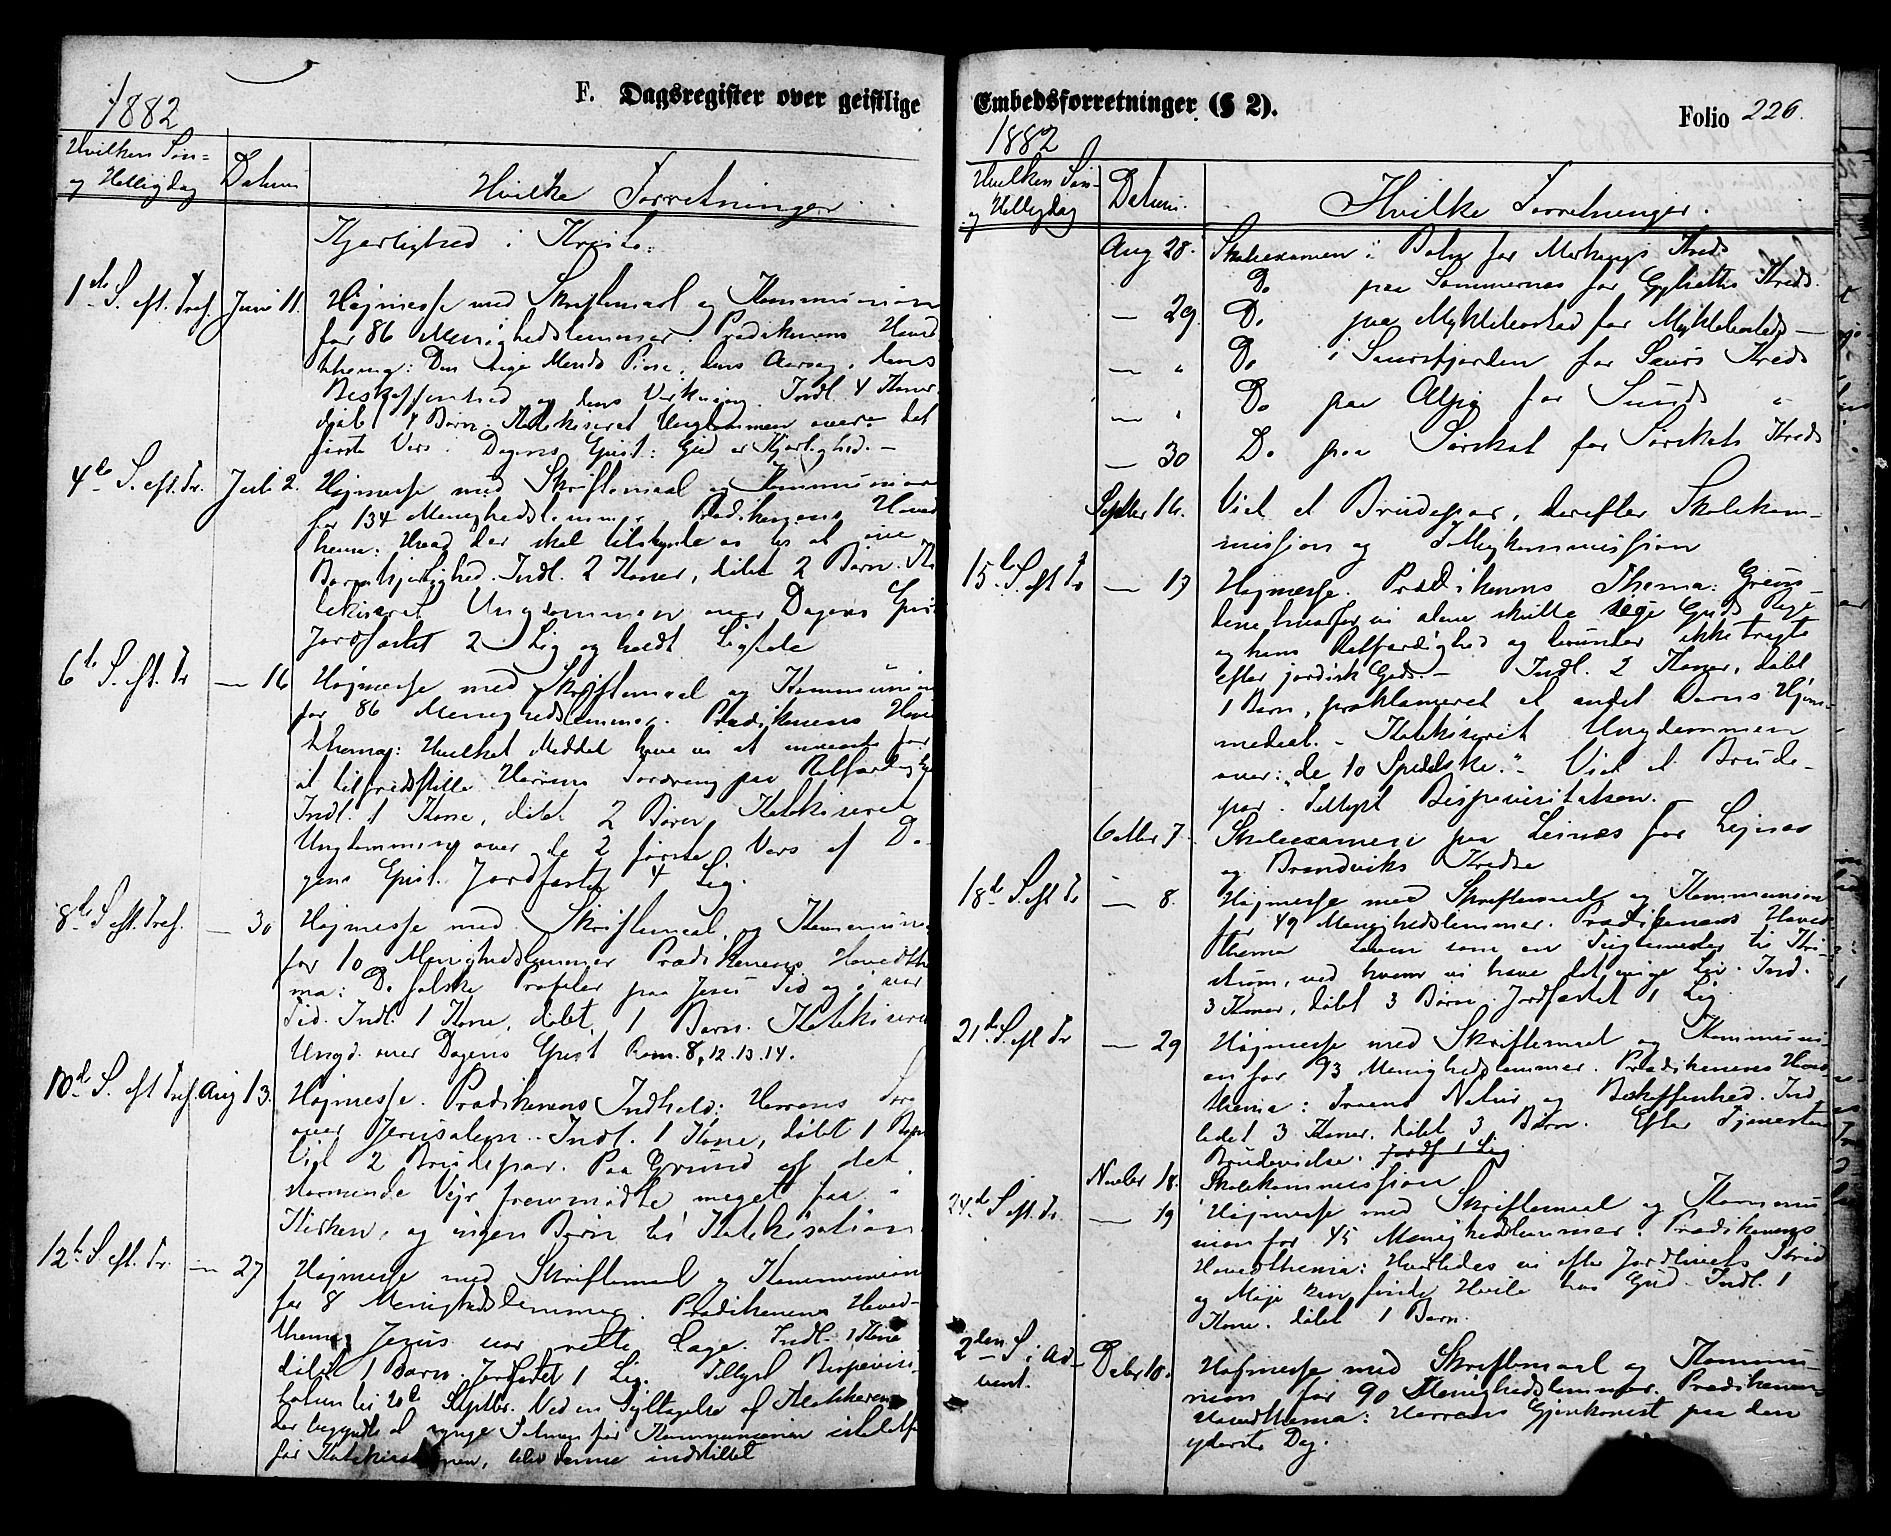 F. Dagsregister over geistlige
1882
Hvilken Søn=
og Helligdag
Datum
Hvilke Forretninger
Kjærlighed i Kristo.
1ste S. eft. Tref. Juni 11. Højmesse med Skriftemaal og Kommunion
for 86 Menighedslemmer. Prædikenens Hoved
thema: Den rige Mands Pine, dens Aarsag, dens
Beskaffenhed og dens Virkning. Indl. 4 Koner
døbt 4 Børn. Katekiseret Ungdommen over det
første Vers i Dagens Epist: Gud er Kjærlighed. —
4de S. eft. Tr. Juli 2. Højmesse med Skriftemaal og Kommunion
for 134 Menighedslemmer. Prædikenens Hoved
thema: Hvad der skal tilskynde os til at øve
Barmhjertighed. Indl. 2 Koner, døbt 2 Børn. Ka
tekiseret Ungdommen over Dagens Epist
Jordfæstet 2 Lig og holdt Ligtale
6te S. eft. Tr — 16 Højmesse med Skriftemaal og Kommunion
for 86 Menighedslemmer. Prædikenens Hoved
thema: Hvilket Middel have vi at anvende for
at tilfredsstille Herrens Fordring paa Retfærdighed
Indl. 1 Kone, døbt 2 Børn, Katekiseret
Ungdommen over de 2 første Vers af Da-
gens Epist. Jordfæstet 4 Lig.
8de S. eft. Tref. — 30 Højmesse med Skriftemaal og Kommunion
for 10 Menighedslemmer Prædikenens Hovedthe
ma: De falske Profeter paa Jesu Tid og i vor
Tid. Indl. 1 Kone, døbt 1 Barn. Katekiseret
Ungd. over Dagens Epist Rom. 8, 12. 13. 14.
10de S. eft Tref. Aug 13. Højmesse. Prædikenens Indhold: Herrens Sorg
over Jerusalem. Indl. 1 Kone, døbt 1 Barn
Viet 2 Brudepar. Paa Grund af det
stormende Vejr fremmødte meget faa i
Kirken, og ingen Børn til Katekisation
12te S. eft. Tr. — 27 Højmesse med Skriftemaal og Kommunion
for 8 Menighedslemmer. Prædikenens Hoved-
thema: Jesus vor rette Læge. Indl. 1 Kone
døbt 1 Barn. Jordfæstet 1 Lig. Tillyst Bispevisi-
tatsen til 20de Septbr. Ved en Iagttagelse af Klokkeren
der begyndte at synge Salmen før Kommunionen istedetfor
før Katekisationen, blev denne indstillet
Embedsforretninger (§ 2).
Folio 226.
1882
Hvilken Søn-
og Helligdag
Datum.
Hvilke Forretninger.
Aug 28. Skoleexamen i Bolen for Kreds
Do paa Sommernes for Kreds.
— 29. Do paa Myklebostad for Myklebostads —
— " Do i Saursfjorden for Saurs Kreds
— " Do paa Alpø for Sunds "
— 30 Do paa Sørskot for Sørskots Kreds
Septbr 16. Viet et Brudepar, derefter Skolekom-
mission og Tilsynskommission
15de S. eft Tr — 17 Højmesse. Prædikenens Thema: Grun-
dene hvorfor vi alene skulle søge Guds Rige
og hans Retfærdighed og derunder ikke tragte
efter jordisk Gods. — Indl. 2 Koner, døbt
1 Barn, proklameret et andet Barns Hjem-
medaab. – Katekiseret Ungdommen
over: „de 10 Spedalske." – Viet et Brude-
par. Tillyst Bispevisitatsen. —
Octbr 7. Skoleexamen paa Leines for Lejnes
og Brandviks Kredse
18de S. eft Tr — 8. Højmesse med Skriftemaal og Kommunion
for 49 Menighedslemmer. Prædikenens Hoved
thema Loven som en Tugtemester til Kri-
stum, ved hvem vi have det evige Liv. Ind.
3 Koner, døbt 3 Børn. Jordfæstet 1 Lig
21de S. eft Tr — 29 Højmesse med Skriftemaal og Kommuni-
on for 93 Menighedslemmer. Prædikenens Hoved-
thema: Troens Natur og Beskaffenhed. Ind
ledet 3 Koner. døbt 3 Børn. Efter Tjenesten
Brudevielse. Jordf 1 Lig
Novbr 18. Skolekommission
24de S. eft. Tr. — 19 Højmesse med Skriftemaal og Kommu
nion for 45 Menighedslemmer. Prædikenens
Hovedthema: Hvorledes vi efter Jordlivets Strid
og Møje kan finde Hvile hos Gud. Indl. 1
Kone. døbt 1 Barn.
2den S. i Ad-
vent. Debr 10. Højmesse med Skriftemaal og Kommu-
nion for 90 Menighedslemmer. Prædikenens
Hovedthema: Herrens Gjenkomst paa den
yderste Dag.